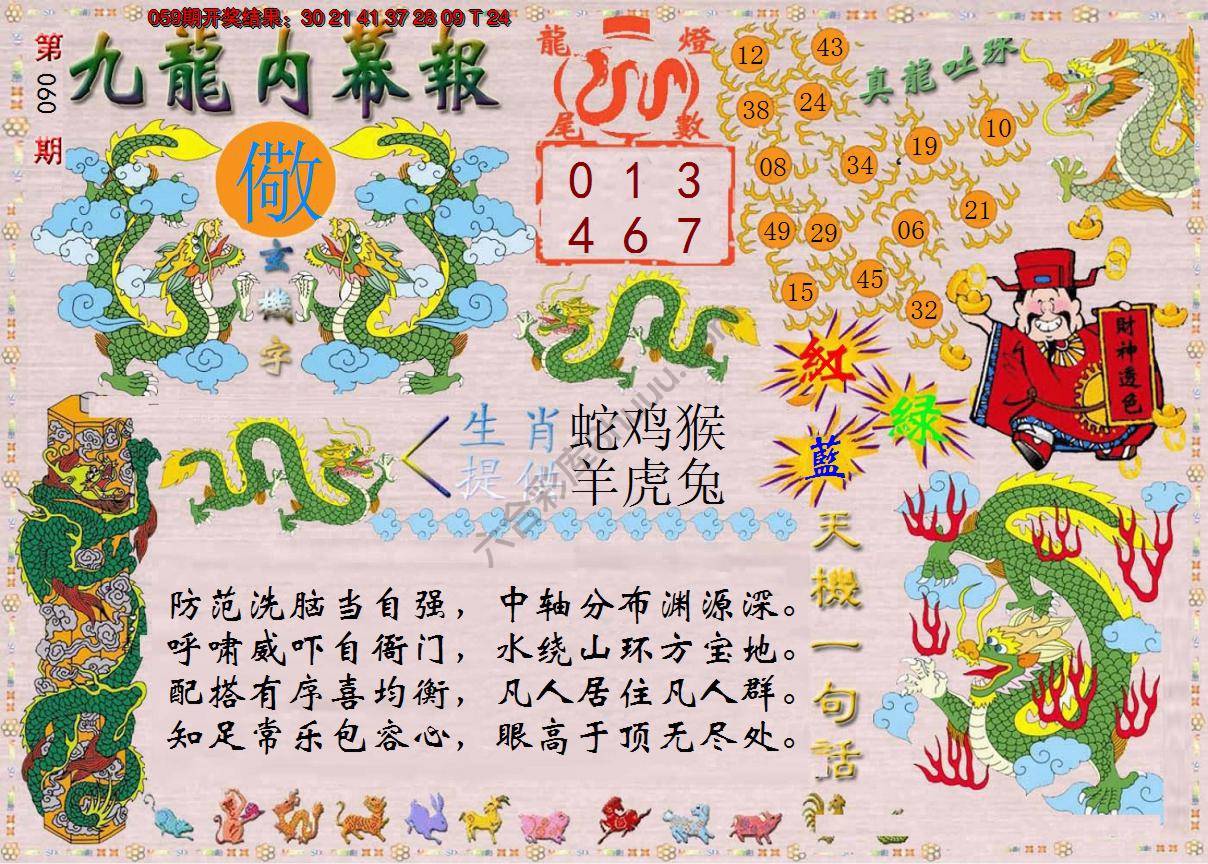 059期开奖结果：30 21 41 37 28 09 T 24
第
090
期
九龍内幕報
儆
玄
機
字
龍 燈
尾 數
0 1 3
4 6 7
真龍吐珠
12 43
38 24
08 34 19 10
49 29 06 21
15 45 32
紅
綠
藍
財神透色
生肖
提供
蛇鸡猴
羊虎兔
天機一句話
防范洗脑当自强，中轴分布渊源深。
呼啸威吓自衙门，水绕山环方宝地。
配搭有序喜均衡，凡人居住凡人群。
知足常乐包容心，眼高于顶无尽处。